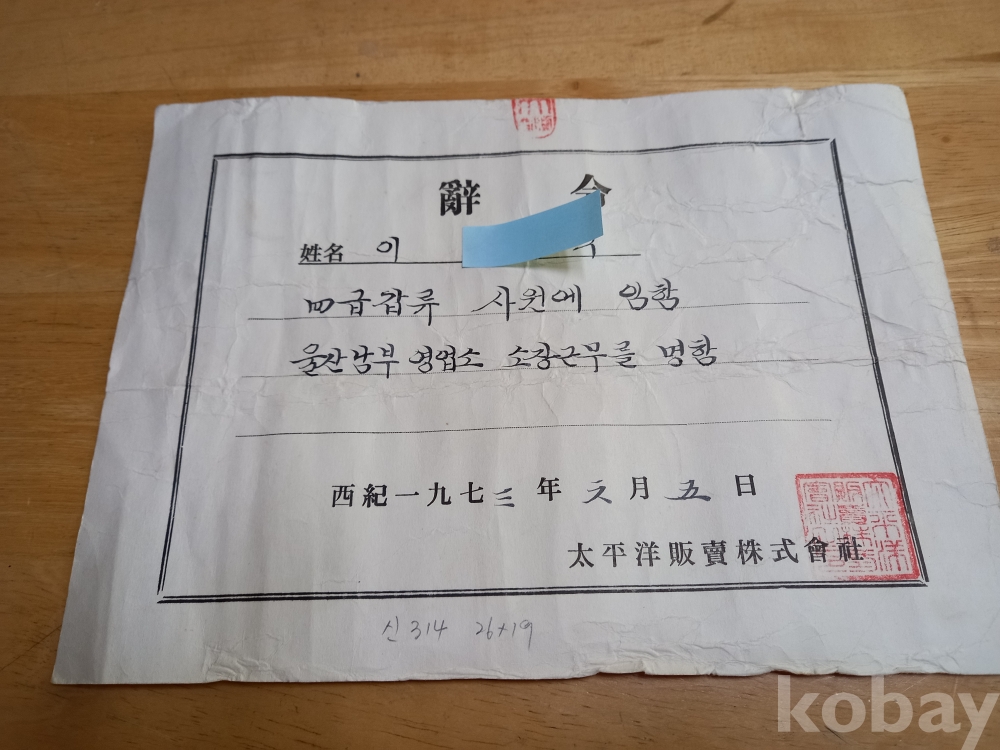 辭 令
姓名 이
四급갑류 사원에 임함
울산남부영업소 소장근무를 명함
西紀一九七三年元月五日
太平洋販賣株式會社
신314 26×19
kobay